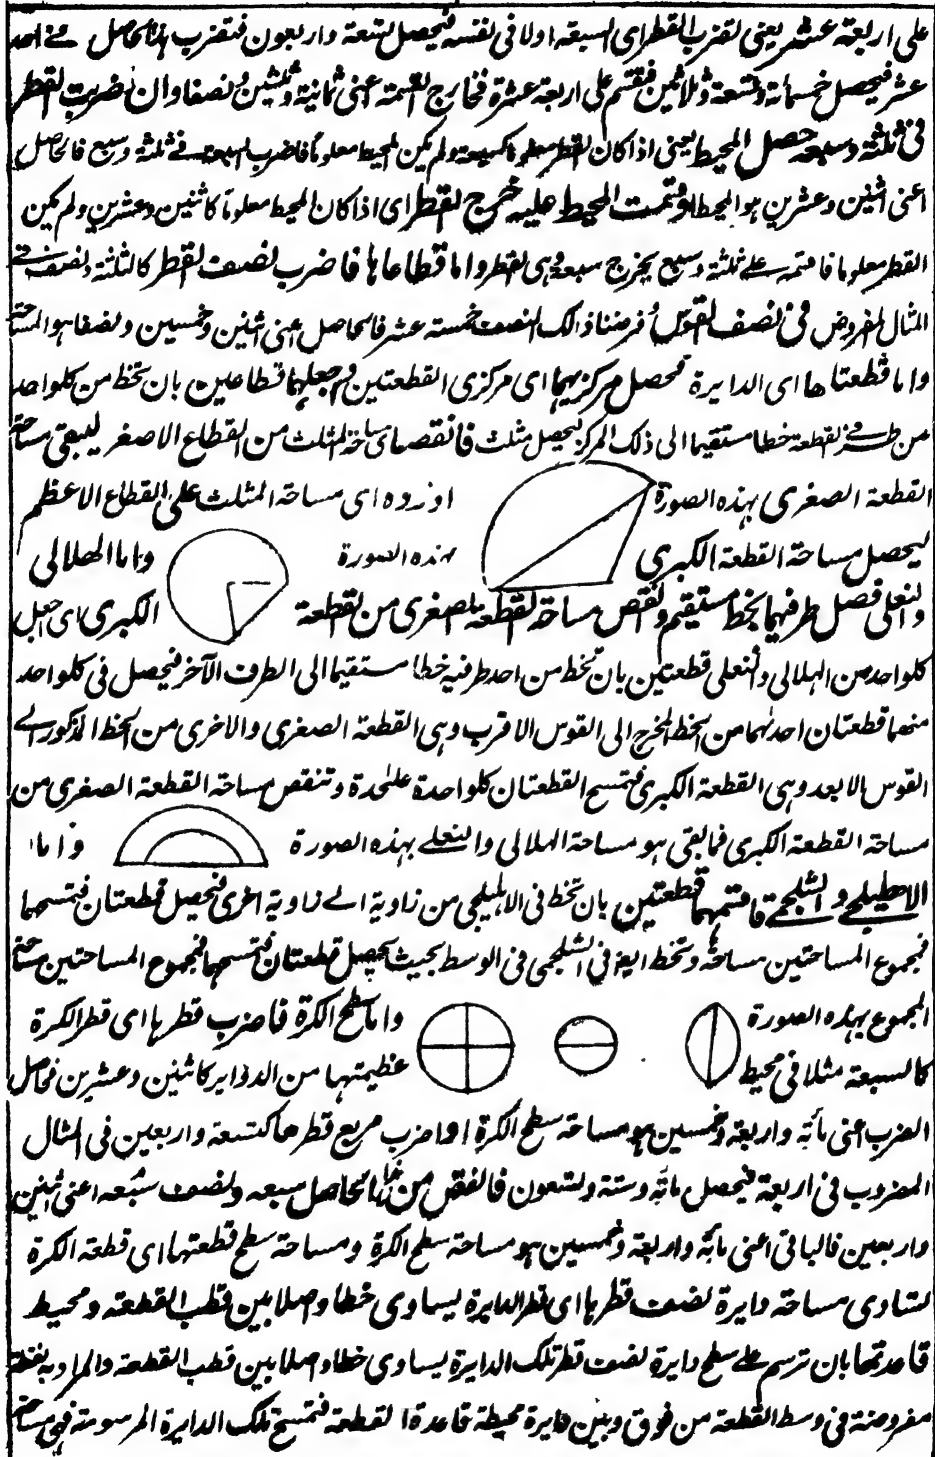 على اربعة عشر يعنى تضرب القطر اى السبعة اولا فى نفسه فيحصل تسعة واربعون فتضرب هذا الحاصل فے احد
عشر فيحصل خمسمائة وتسعة وثلاثين فيقسم على اربعة عشرة فخارج القسمة اعنى ثمانية وثلثين ونصفا وان ضربت القطر
فى ثلثة وسبع حصل المحيط يعنى اذا كان القطر معلوما كسبعة ولم يكن المحيط معلوما فاضرب السبعة فے ثلثة وسبع فالحاصل
اعنى اثنين وعشرين هو المحيط او قسمت المحيط عليه خرج القطر اى اذا كان المحيط معلوما كاثنين وعشرين ولم يكن
القطر معلوما فاقسمه علے ثلثة وسبع يخرج سبعة وهى القطر واما قطاعاها فاضرب نصف القطر كالثلثة ونصف فے
المثال المفروض فى نصف القوس فرضنا ذالك النصف خمسة عشر فالحاصل اعنى اثنين وخمسين ونصفا هو المساحة
واما قطعتاها اى الدايرة فحصل مركزيهما اى مركزى القطعتين وجعلهما قطاعين بان تخط من كلواحد
من طرفے القطعة خطا مستقيما الى ذلك المركز ليحصل مثلث فانقصه اى مساحة المثلث من القطاع الاصغر ليبقى مساحة
القطعة الصغرى بهذه الصورة او زده اى مساحة المثلث على القطاع الاعظم
ليحصل مساحة القطعة الكبرى بهذه الصورة واما الهلالى
والنعلى فصل طرفيهما بخط مستقيم وانقص مساحة القطعة الصغرى من القطعة الكبرى اى جعل
كلواحد من الهلالى والنعلى قطعتين بان تخط من احد طرفيه خطا مستقيما الى الطرف الآخر فيحصل فى كلواحد
منهما قطعتان احدٰهما من الخط المخرج الى القوس الاقرب وهى القطعة الصغرى والاخرى من الخط المذكور الے
القوس الابعد وهى القطعة الكبرى فتمسح القطعتان كلواحدة علٰحدة وتنقص مساحة القطعة الصغرى من
مساحة القطعة الكبرى فما بقى هو مساحة الهلالى والنعلے بهذه الصورة واما
الاهليلجے والشلجمے فاقسمهما قطعتين بان تخط فى الاهليلجى من زاوية الے زاوية اخرى فيحصل قطعتان فتمسحهما
فمجموع المساحتين مساحته وتخط ايضا فى الشلجمى فى الوسط بحيث يحصل قطعتان فتمسحهما فمجموع المساحتين مساحة
المجموع بهذه الصورة واما سطح الكرة فاضرب قطرها اى قطر الكرة
كالسبعة مثلا فى محيط عظيمتها من الدواير كاثنين وعشرين فحاصل
الضرب اعنى مائة واربعة وخمسين هو مساحة سطح الكرة او اضرب مربع قطرها كتسعة واربعين فى المثال
المضروب فى اربعة فيحصل مائة وستة وتسعون فانقص من هذا الحاصل سبعه ونصف سبعه اعنى اثنين
واربعين فالباقى اعنى مائة واربعة وخمسين هو مساحة سطح الكرة ومساحة سطح قطعتها اى قطعة الكرة
تساوى مساحة دايرة نصف قطرها اى قطر الدايرة يساوى خطا واصلا بين قطب القطعة ومحيط
قاعدتها بان ترسم علے سطح دايرة نصف قطر تلك الدايرة يساوى خطا واصلا بين قطب القطعة والمراد به نقطة
مفروضة فى وسط القطعة من فوق وبين دايرة محيطة قاعدة القطعة فتمسح تلك الدايرة المرسومة فهى مساحة